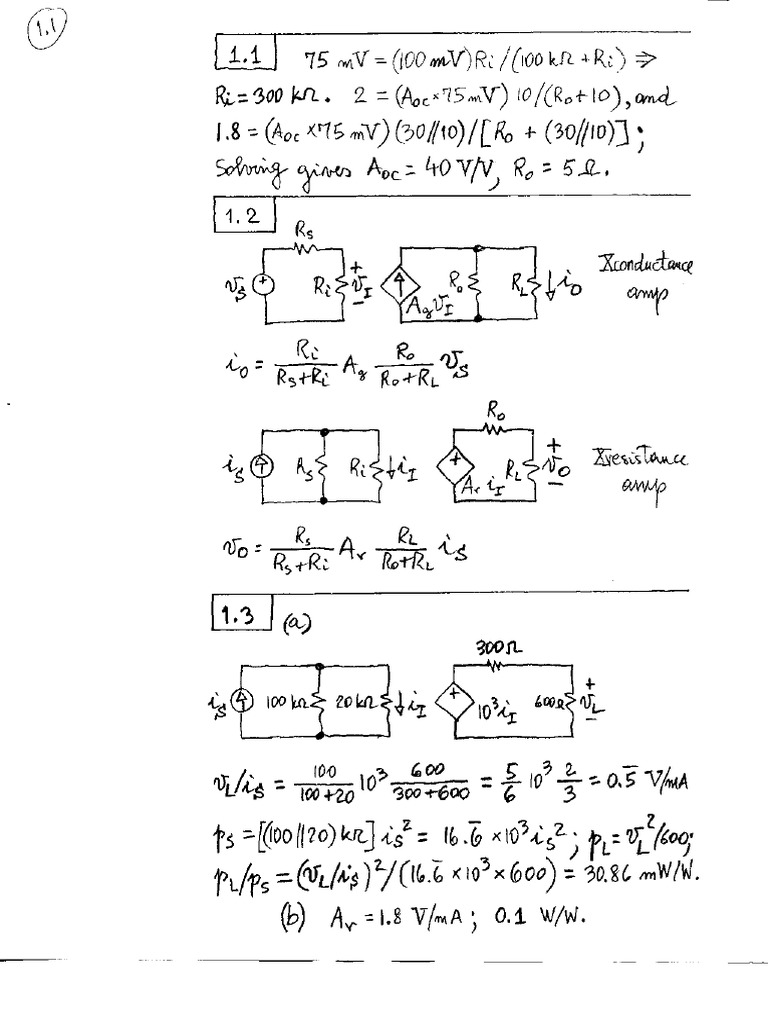 1.1
1.1 75 mV = (100 mV)Ri/(100 kΩ + Ri) ⇒
Ri = 300 kΩ. 2 = (Aoc×75 mV) 10/(Ro+10), and
1.8 = (Aoc×75 mV)(30//10)/[Ro + (30//10)];
Solving gives Aoc = 40 V/V, Ro = 5 Ω.
1.2
Rs
vs + Ri + vI − AgvI Ro RL ↓io Xconductance
amp
io = Ri/(Rs+Ri) Ag Ro/(Ro+RL) vs
Ro
is As Ri ↓iI + Ar iI RL + vo − Xresistance
amp
vo = Rs/(Rs+Ri) Ar RL/(Ro+RL) is
1.3 (a)
300Ω
is 100 kΩ 20 kΩ ↓iI + 10³iI 600Ω + vL −
vL/is = 100/(100+20) 10³ 600/(300+600) = 5/6 10³ 2/3 = 0.5̅ V/mA
ps = [(100//20) kΩ] is² = 16.6̅ ×10³is²; pL = vL²/600;
pL/ps = (vL/is)²/(16.6̅ ×10³×600) = 30.86 mW/W.
(b) Ar = 1.8 V/mA; 0.1 W/W.